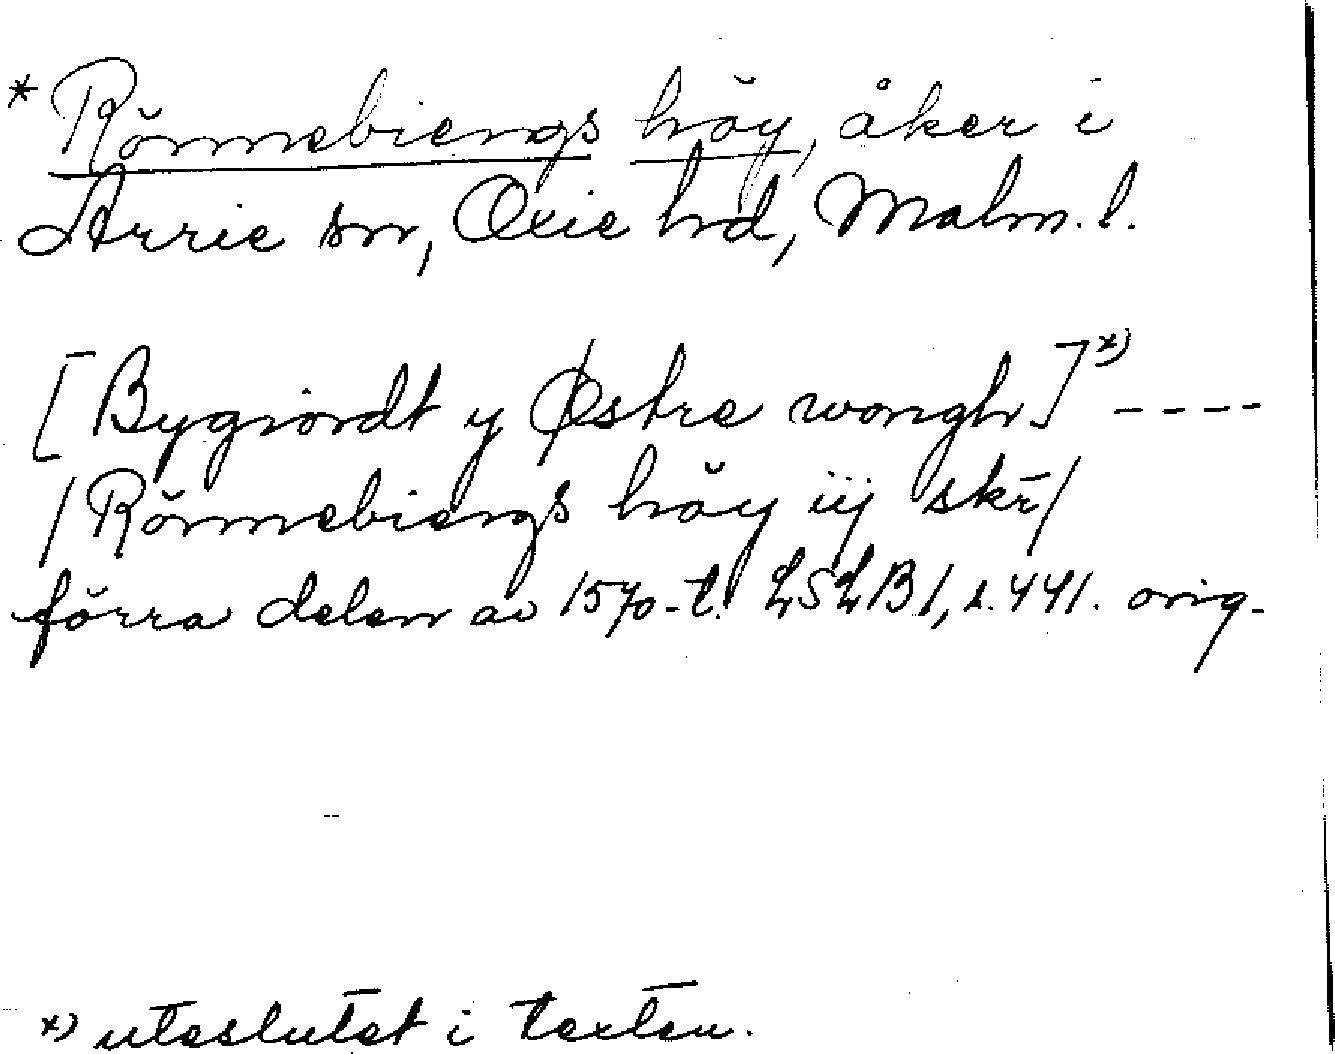 * Rönnebiengs höy, åker i
Arrie sn, Oxie hd, Malm. l.
[Bygiördt y Østre wongh]*) ----
/Rönnebiengs höy iij skr̄/
förra delen av 1570-t. LSLB 1, s. 441. orig.
*) uteslutet i texten.